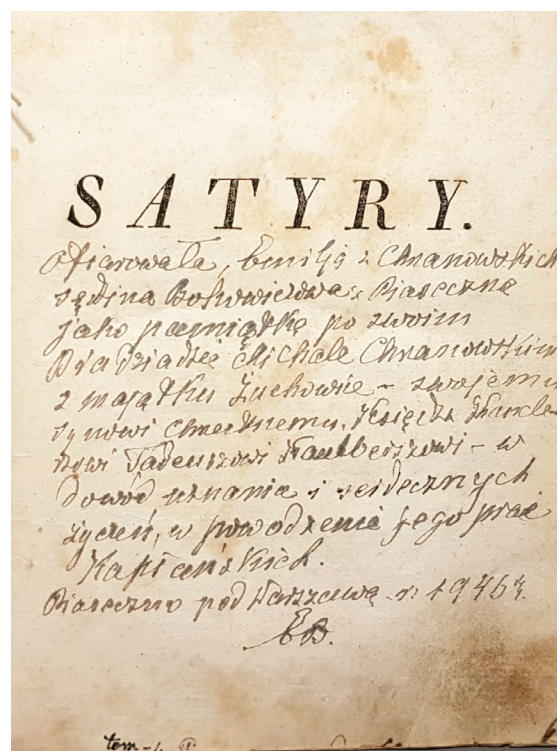 SATYRY.
ofiarowała, Emilja z Chranowskich
sędzina z Piaseczna
jako pamiątkę po swoim
Pradziadzie Michale Chranowskim
z majątku Żuchowie – swojemu
synowi chrzestnemu, Księdzu
Tadeuszowi – w
dowód uznania i serdecznych
życzeń, w powodzenia jego prac
Kapłańskich.
Piaseczno pod Warszawą r. 1946
EB.
tom